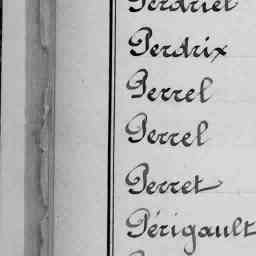 Perdriel
Perdrix
Perrel
Perrel
Perret
Périgault